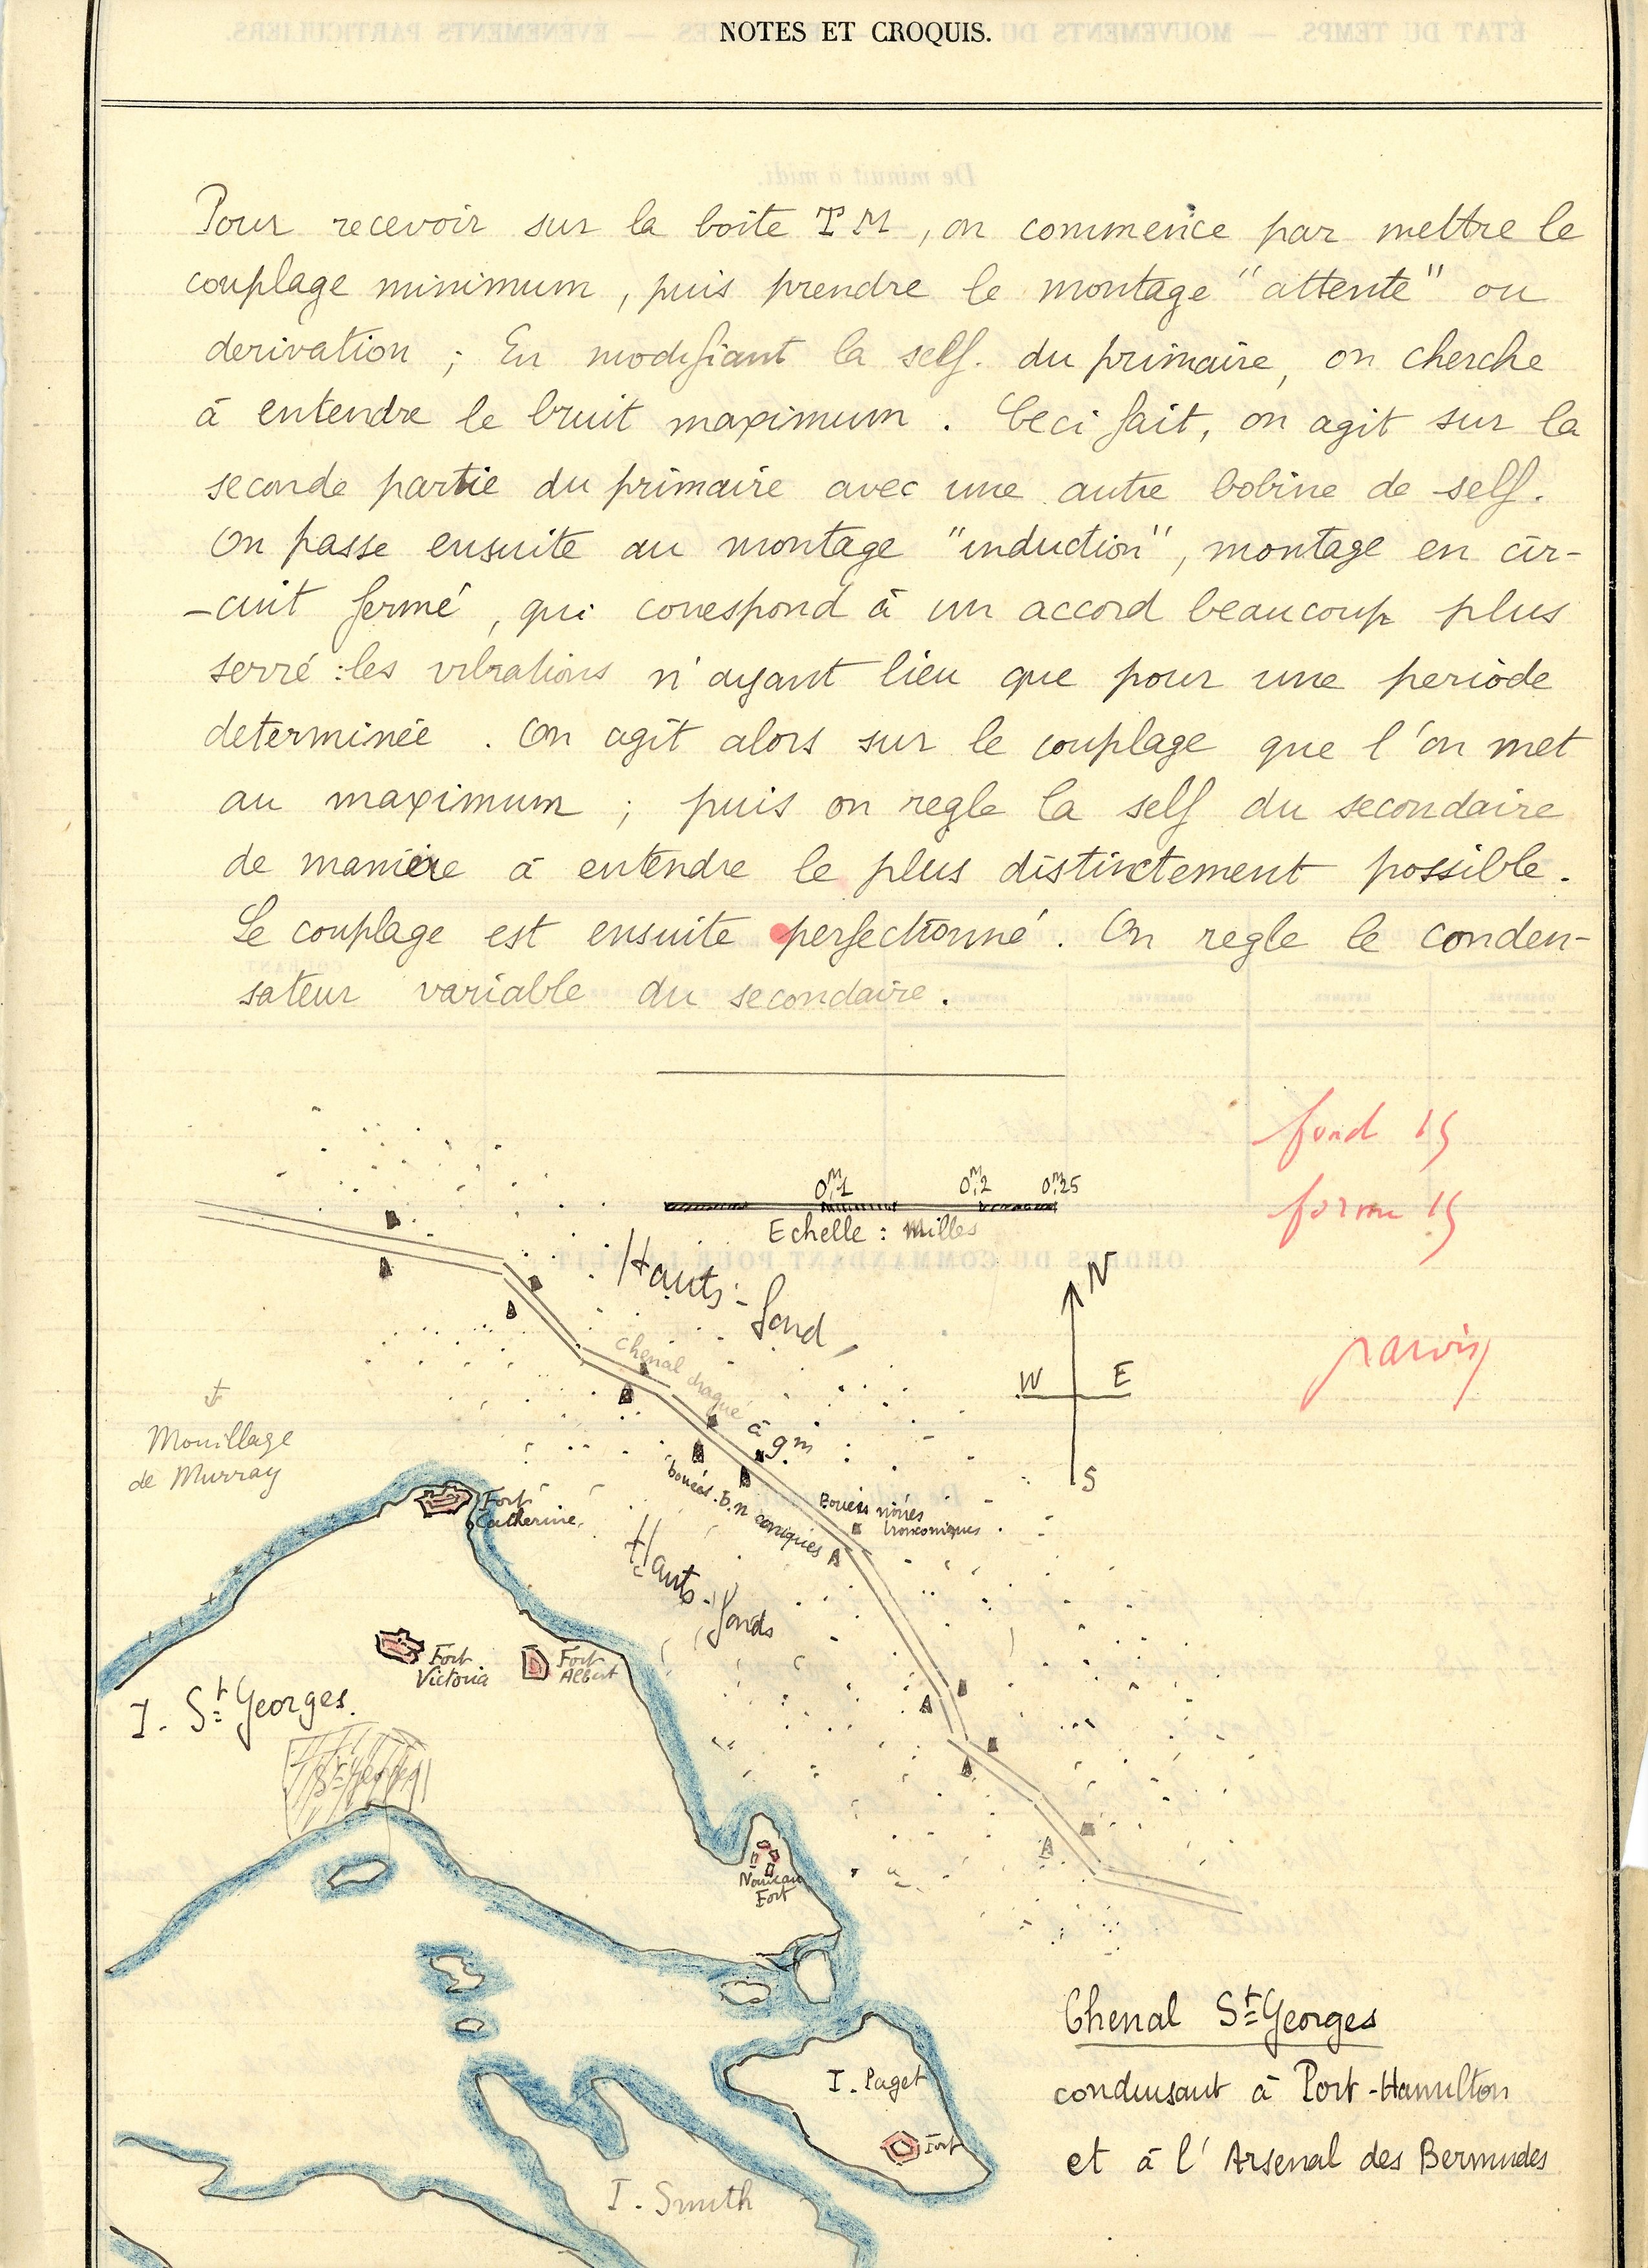 NOTES ET CROQUIS.
Pour recevoir sur la boite T M, on commence par mettre le
couplage minimum, puis prendre le montage "attente" ou
derivation ; En modifiant la self. du primaire, on cherche
à entendre le bruit maximum. Ceci fait, on agit sur la
seconde partie du primaire avec une autre bobine de self.
On passe ensuite au montage "induction", montage en cir-
-cuit fermé, qui correspond à un accord beaucoup plus
serré : les vibrations n'ayant lieu que pour une periode
determinée. On agit alors sur le couplage que l'on met
au maximum ; puis on regle la self du secondaire
de maniere à entendre le plus distinctement possible.
Le couplage est ensuite perfectionné. On regle le conden-
sateur variable du secondaire.
fond 15
forme 15
0,M1 0,M2 0,M25
Echelle : Milles
Hauts-fond
N
W E
S
chenal dragué à 9m
Mouillage
de Murray
bouées coniques
Bouées noires
tronconiques
Fort
Catherine
Hauts-fonds
Fort
Victoria
Fort
Albert
I. St Georges.
St Georges
Nouveau
Fort
Chenal St Georges
conduisant à Port-Hamilton
et à l'Arsenal des Bermudes
I. Paget
Fort
I. Smith